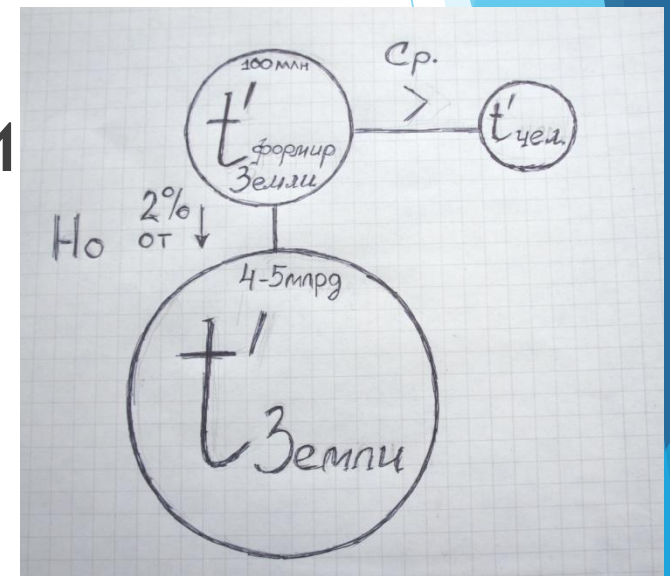 100 млн
t'
формир
Земли
Ср.
>
t' чел.
Но
2%
от ↓
4-5 млрд
t'
Земли